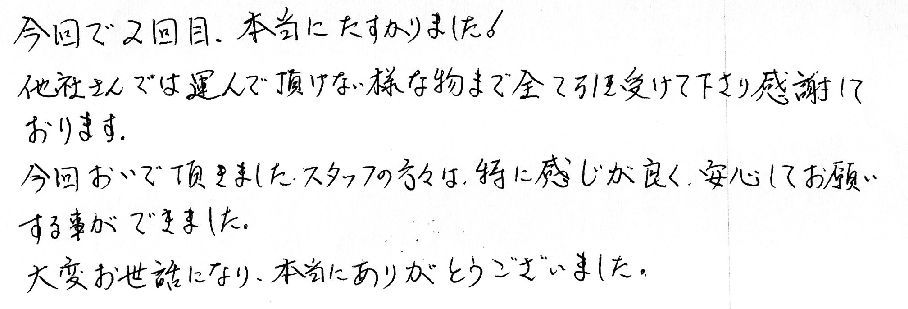 今回で2回目、本当にたすかりました!
他社さんでは運んで頂けない様な物まで全て引き受けて下さり感謝して
おります。
今回おいで頂きました、スタッフの方々は、特に感じが良く、安心してお願い
する事ができました。
大変お世話になり、本当にありがとうございました。